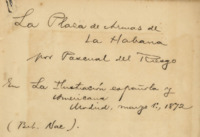 La Plaza de Armas de
La Habana
por Pascual del Riesgo
En La Ilustración española y
americana
Madrid, marzo 1872
(Bib. Nac.)